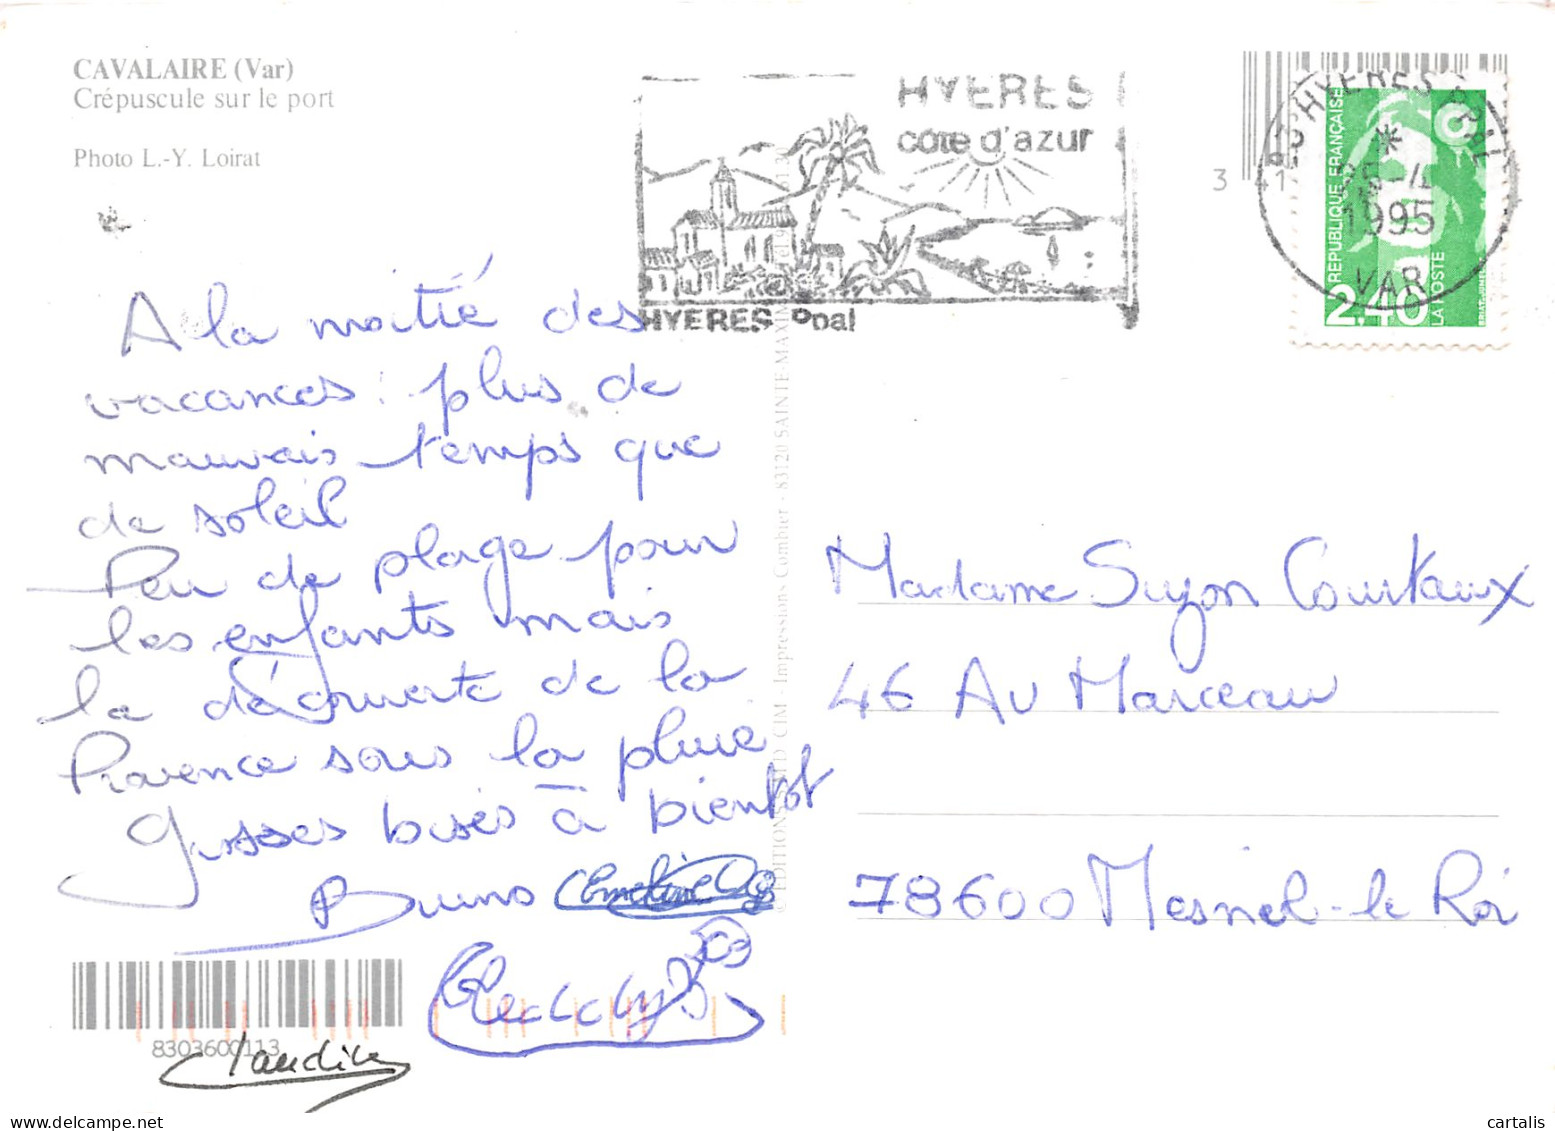 CAVALAIRE (Var)
Crépuscule sur le port
Photo L.-Y. Loirat
HYERES
côte d'azur
HYERES Ppal
83 HYERES PPAL
*
25-4
1995
VAR
RÉPUBLIQUE FRANÇAISE
2,40
LA POSTE
3
1
A la moitié des
vacances : plus de
mauvais temps que
de soleil
Peu de plage pour
les enfants mais
la découverte de la
Provence sous la pluie
Grosses bises à bientôt
Bruno
Claudine
8303600113
EDITIONS
CIM - Impressions Combier - 83120 SAINTE-MAXIME
Madame Suzon Courtaux
46 Av Marceau
78600 Mesnel-le Roi
cartalis
www.delcampe.net